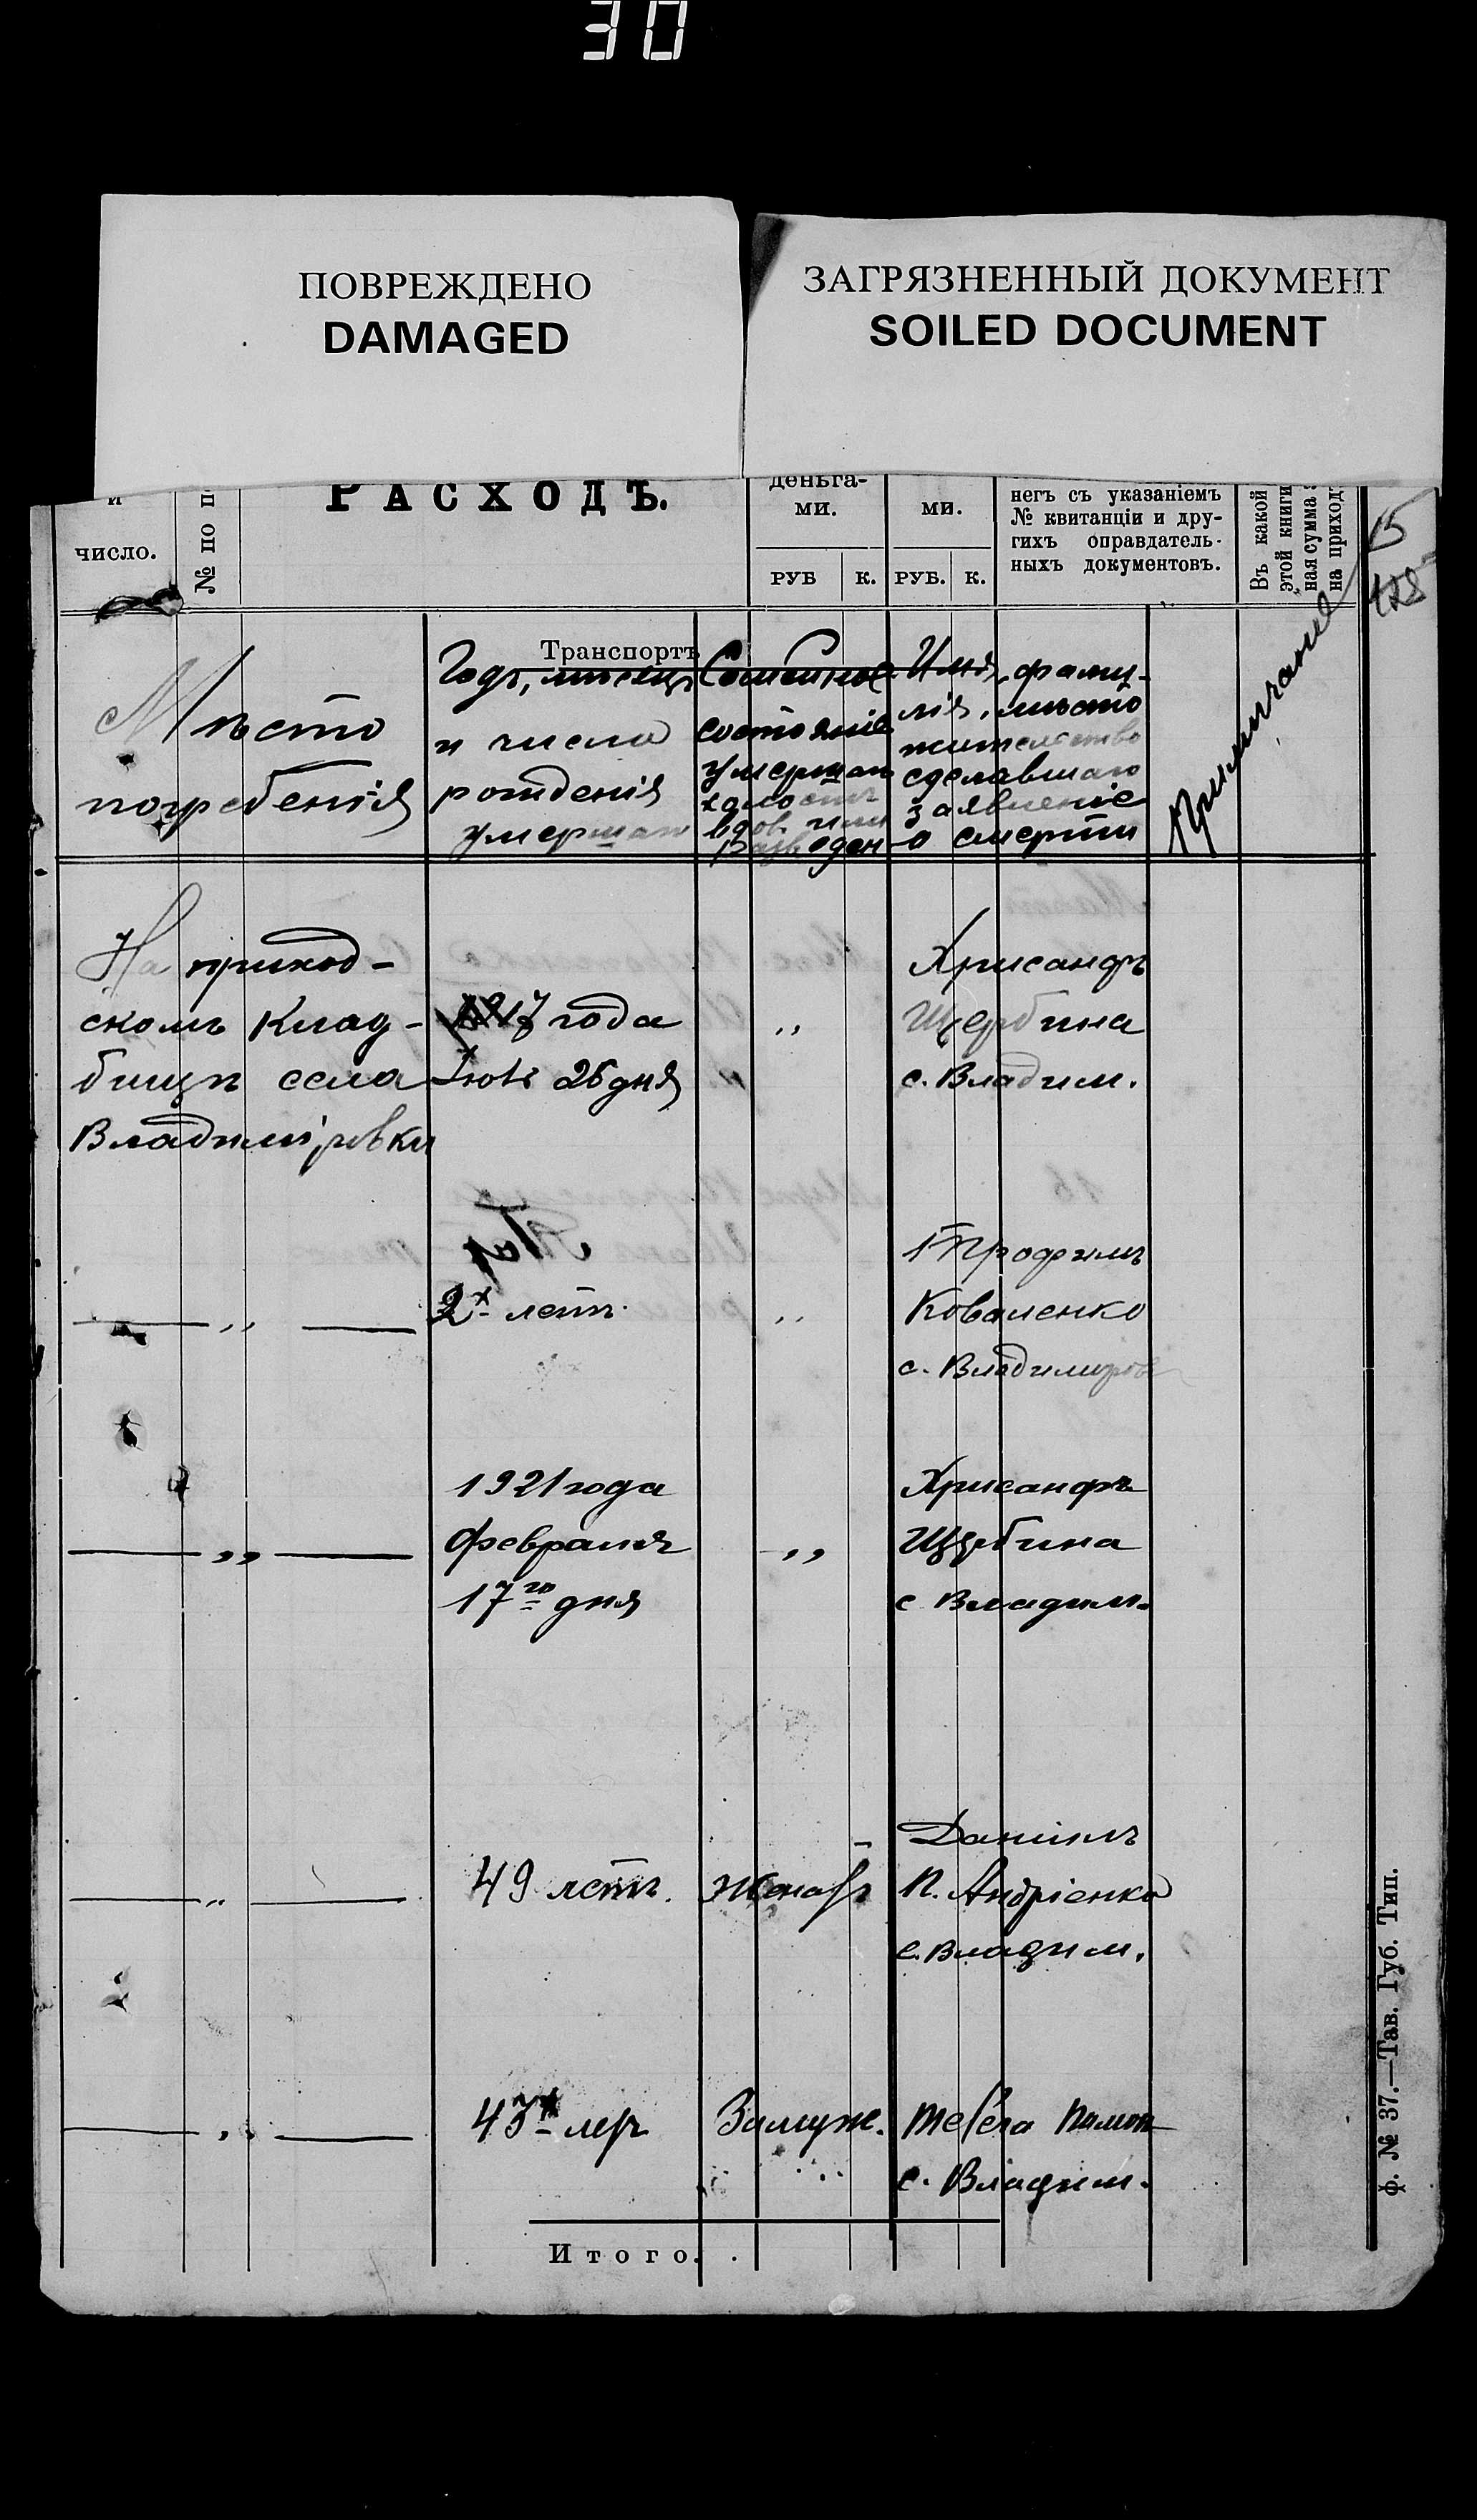 30
ПОВРЕЖДЕНО
DAMAGED
ЗАГРЯЗНЕННЫЙ ДОКУМЕНТ
SOILED DOCUMENT
и
число.
№ по п
РАСХОДЪ.
деньга-
ми.
РУБ К.
ми.
РУБ. К.
негъ съ указаніемъ
№ квитанціи и дру-
гихъ оправдатель-
ныхъ документовъ.
Въ какой
этой книги
ная сумма з
на приход
15
Транспортъ
Мѣсто
погребенія
Годъ, мѣсяцъ
и число
рожденія
умершаго
Семейное
состояніе
умершаго
холостъ
вдов. или
разведен
Имя, фами-
лія, мѣсто
жительство
сдѣлавшаго
заявленіе
о смерти
Примѣчаніе
На приход-
скомъ клад-
бищѣ села
Владиміровки
1917 года
26 дня
„
Хрисанфъ
Щербина
с. Владим.
— „ —
2х летъ.
„
Трофимъ
Коваленко
с. Владимиров
— „ —
1921 года
Февраля
17го дня
„
Хрисанфъ
Щербина
с Владим.
— „ —
49 летъ.
Женатъ
Даніилъ
П. Андріенко
с. Владим.
— „ —
43х лет
Замуж.
с. Владим.
Итого.
ф. № 37.—Тав. Губ. Тип.